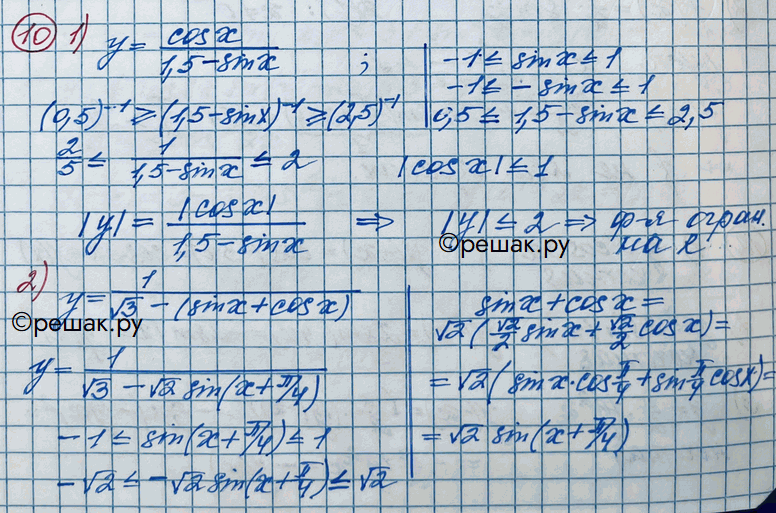 10 1) y = cosx / (1,5 - sinx) ;
-1 ≤ sinx ≤ 1
-1 ≤ -sinx ≤ 1
0,5 ≤ 1,5 - sinx ≤ 2,5
(0,5)⁻¹ ≥ (1,5 - sinx)⁻¹ ≥ (2,5)⁻¹
2/5 ≤ 1/(1,5 - sinx) ≤ 2
|cosx| ≤ 1
|y| = |cosx| / (1,5 - sinx) ⇒ |y| ≤ 2 ⇒ ф-я огран.
на R
©решак.ру
2) y = 1/(√3 - (sinx + cosx))
©решак.ру
y = 1/(√3 - √2 sin(x + π/4))
-1 ≤ sin(x + π/4) ≤ 1
-√2 ≤ -√2 sin(x + π/4) ≤ √2
sinx + cosx =
√2 (√2/2 sinx + √2/2 cosx) =
= √2 (sinx·cos π/4 + sin π/4 cosx) =
= √2 sin(x + π/4)